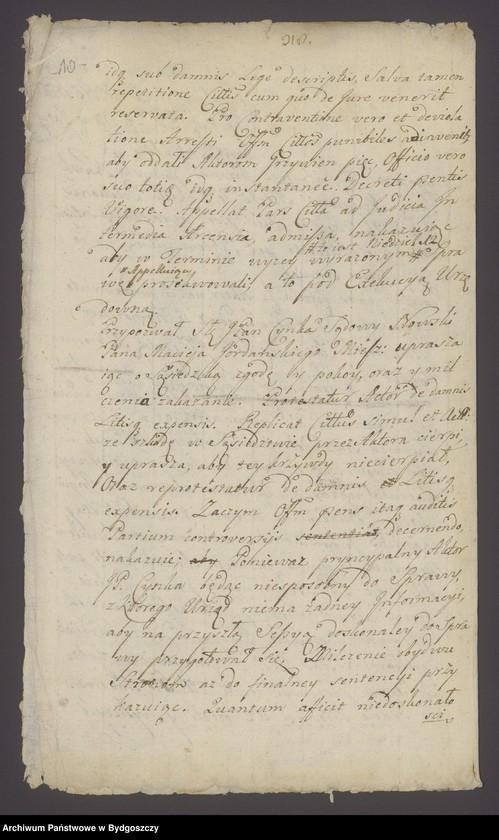 218.
10-
idq sub damnis Lege descriptis, Salva tamen
repetitione Cittis cum quo de Jure venerit
reservata. Pro Contraventione vero et deviola
tione Arresti Offm Cittos punibiles adinvenit,
aby oddali Aktorom Grzywien pięć, Officio vero
suo totię idq instantanee. Decreti pntis
Vigore. Appellat Pars Citta ad Judicia In
termedia Arcensia, admissa, nakazuiąc
# to iest Niedziel
aby w Terminie wyżey wyrażonym # Spra
# Appelluiący
wę prosekwowali, a to pod Exekucyą Urzę
downą.
Przypozwał Sł. Jan Cynka Sądowy
Pana Macieja Jordańskiego Mieszc: uprasza
iąc o Sąsiedzką zgodę by pokoy, oraz y mil
czenia zakazanie. Protestatur Actor de damnis
Litisq expensis. Replicat Cittus simul et
ze szkodę w Sąsiedztwie przez Aktora cierpi,
y uprasza, aby tey krzywdy niecierpiał,
Oraz reprotestatur de damnis Litisq
expensis. Zaczym Offm pens itaq auditis
Partium controversijs sententias, decernendo,
nakazuie; aby Ponieważ pryncypalny Aktor
JP. Cynka będąc niesposobny do Sprawy,
z którego Urząd niema żadney Informacyi,
aby na przyszłą Sessyą doskonaley do Spra
wy przygotował się. Milczenie obydwu
Stronom aż do finalney sentencyi przy
kazuiąc. Quantum afficit niedoskonało
sci
Archiwum Państwowe w Bydgoszczy